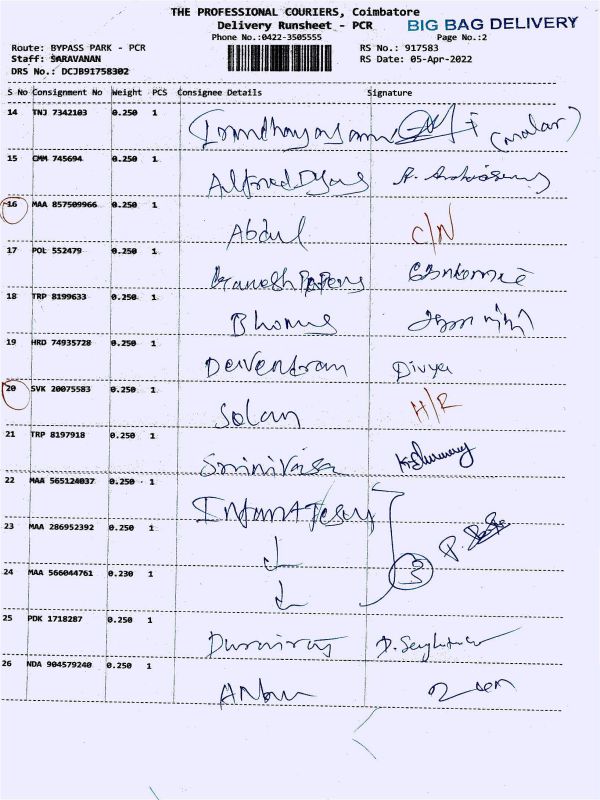 THE PROFESSIONAL COURIERS, Coimbatore
Delivery Runsheet - PCR
BIG BAG DELIVERY
Phone No.:0422-3505555
Page No.:2
Route: BYPASS PARK - PCR
RS No.: 917583
Staff: SARAVANAN
RS Date: 05-Apr-2022
DRS No.: DCJB91758302
S No Consignment No Weight PCS Consignee Details Signature
14 TNJ 7342103 0.250 1 (malar)
15 CMM 745694 0.250 1 Alfred
16 MAA 857509966 0.250 1 Abdul C/N
17 POL 552479 0.250 1
18 TRP 8199633 0.250 1
19 HRD 74935728 0.250 1 Deivendran Divya
20 SVK 20075583 0.250 1 Solan H/R
21 TRP 8197918 0.250 1 Srinivasa
22 MAA 565124037 0.250 1
23 MAA 286952392 0.250 1
24 MAA 566044761 0.230 1 3
25 PDK 1718287 0.250 1 Durairaj
26 NDA 904579240 0.250 1 Anbu